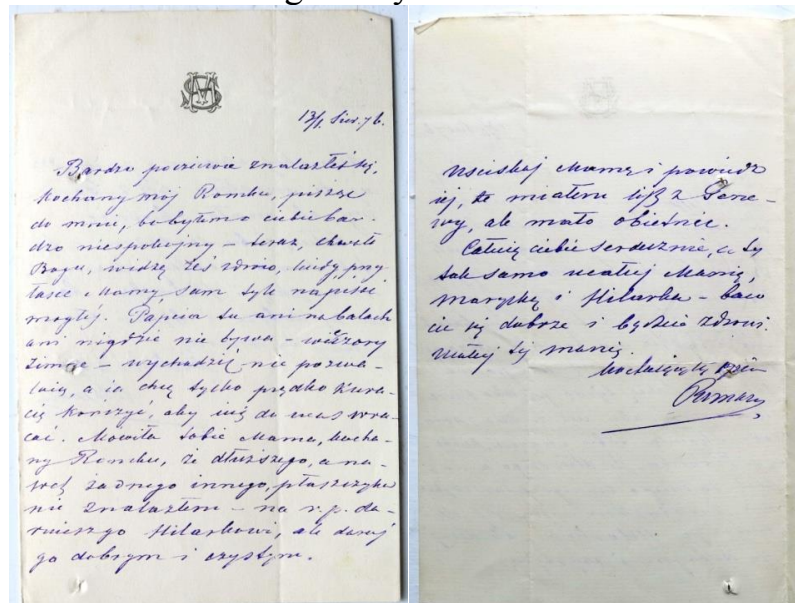 Bardzo poczciwie znalazłeś się,
kochany mój Romku, pisząc
do mnie, bo byłem o ciebie bar-
dzo niespokojny – teraz, chwała
Bogu, widzę żeś zdrów, kiedy przy
łasce Mamy sam tyle napisać
mogłeś. Papcia tu ani na balach
ani nigdzie nie bywa – wieczory
zimne – wychodzić nie pozwa-
lają, a ja chcę tylko prędko kura-
cję kończyć, aby już do was wra-
cać. Mówiła Tobie Mama, kocha-
ny Romku, że dłuższego, a na-
wet żadnego innego, płaszczyka
nie znalazłem – na r.p. da-
rujesz go Hilarkowi, ale daruj
go dobrym i czystym.
Uściskaj Mamę i powiedz
jej, że miałem list z Gene-
wy, ale mało obietnic.
Całuję ciebie serdecznie, a Ty
tak samo ucałuj Manię,
Marychę i Hilarka – baw
cie się dobrze i bądźcie zdrowi.
Ucałuj Tej
Kochający Cię
Roman